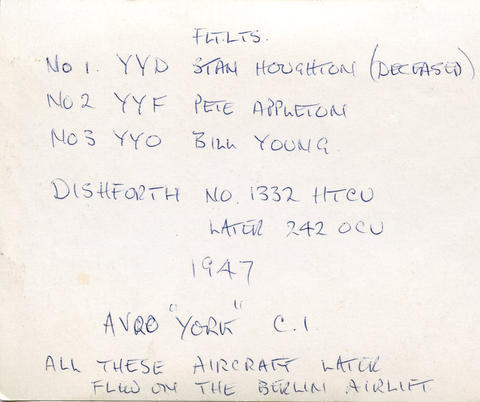 FLT.LTS.
No 1. YYD STAN HOUGHTON (DECEASED)
No 2 YYF PETE APPLETON
No 3 YYO BILL YOUNG.
DISHFORTH No. 1332 HTCU
LATER 242 OCU
1947
AVRO "YORK" C.1
ALL THESE AIRCRAFT LATER
FLEW ON THE BERLIN AIRLIFT